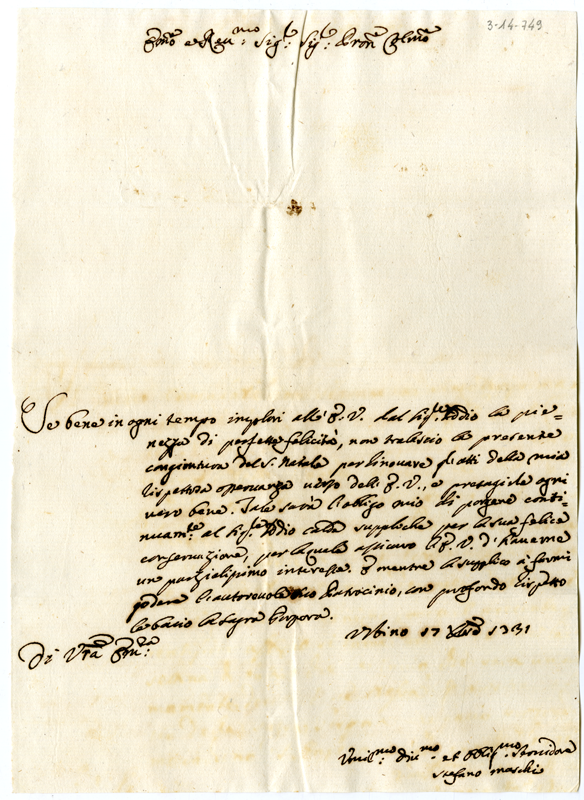 3-14-749
Emo e Rev.mo Sig.r Sig.r Pron Colmo
Se bene in ogni tempo implori all' E. V. dal Sig.re Iddio la pie-
nezza di perfetta felicità, non tralascio la presente
congiontura del S. Natale per rinovare gl'atti della mia
rispettosa osservanza verso dell' E. V., e presagirle ogni
vero bene. Tale sarà l'obligo mio di porgere conti-
nuam.te al Sig.re Iddio calde suppliche per la sua felice
conservazione, per la quale assicuro l'E. V. d'haverne
un parzialissimo interesse. E mentre la supplico à farmi
godere l'autorevole suo Patrocinio, con profondo rispetto
le bacio la Sagra Porpora.
Urbino 17 Xbre 1731
Di Vra Em.za
Umil.mo Div.mo et Obblig.mo Servidore
Stefano Maschi